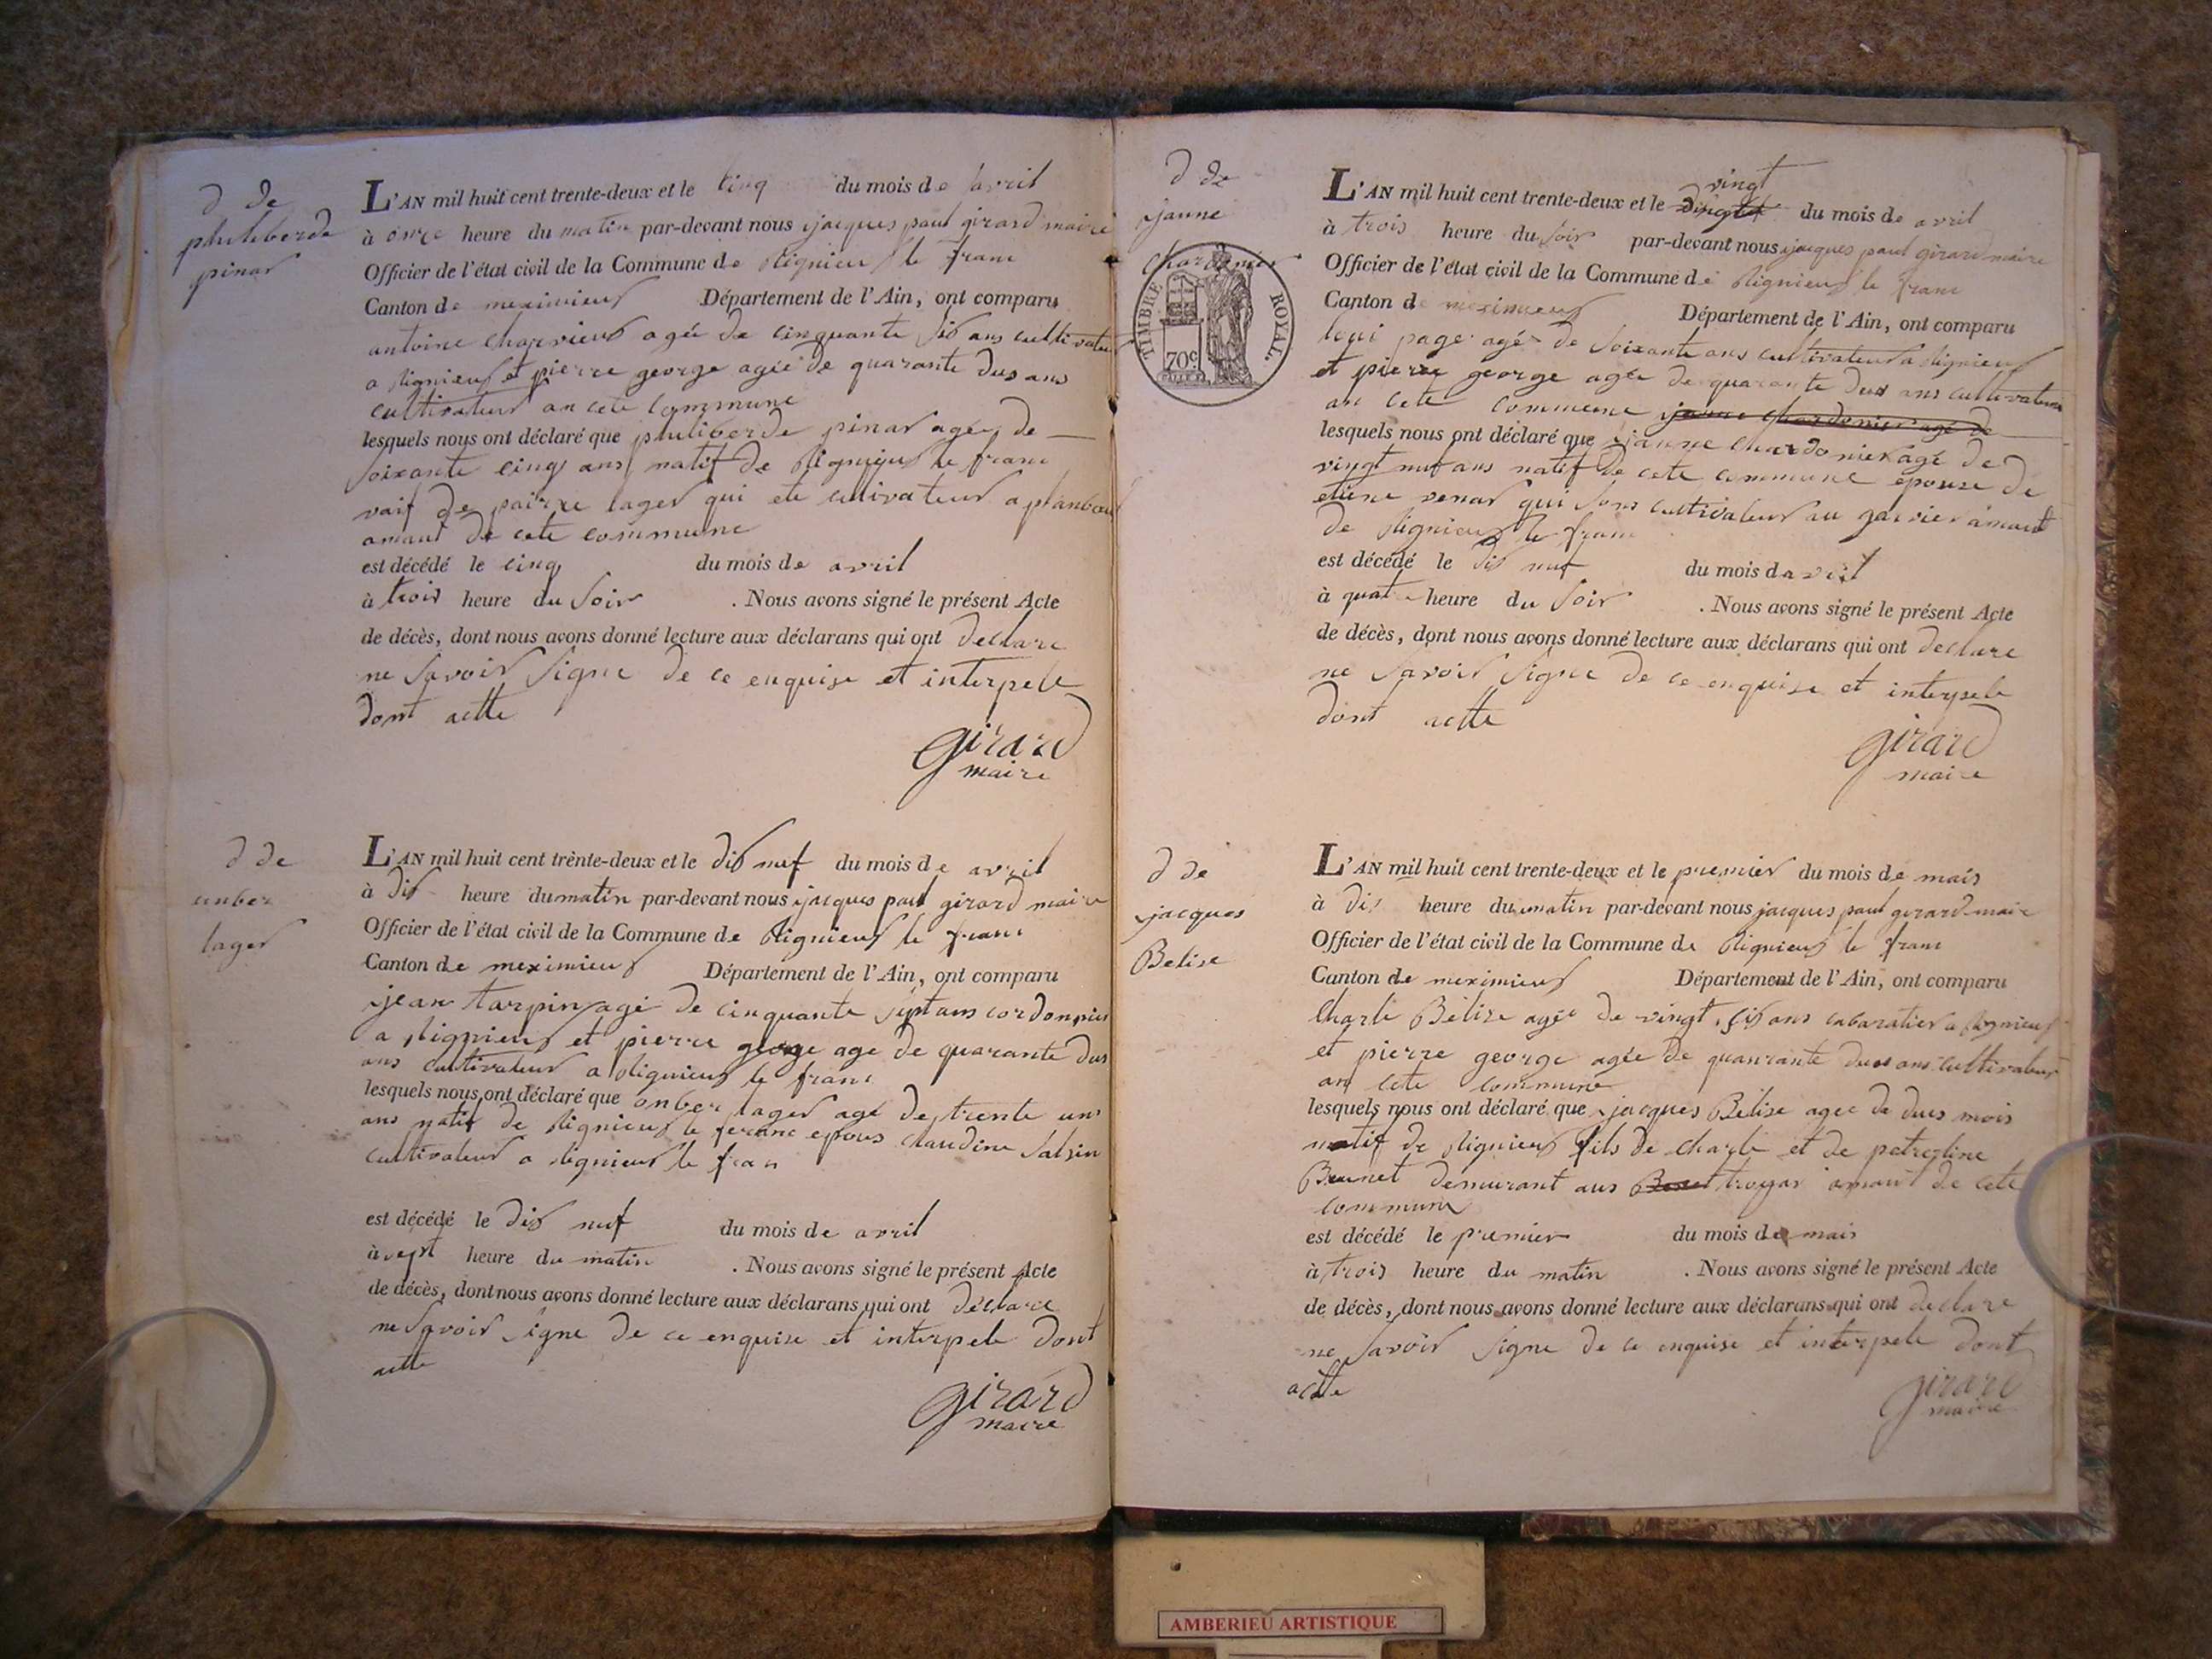 d de
phileberde
pinar
L'AN mil huit cent trente-deux et le cinq du mois de avril
à onze heure du matin par-devant nous jacques paul girard maire
Officier de l'état civil de la Commune de Rignieux le franc
Canton de meximieux Département de l'Ain, ont comparu
antoine charvieux agée de cinquante six ans cultivateur
a Rignieux et pierre george agée de quarante dus ans
cultivateur an cete commune
lesquels nous ont déclaré que philiberde pinar agée de
soixante cinq ans natif de Rignieux le franc
de pairre lager qui ete cultivateur a
amaut de cete commune
est décédé le cinq du mois de avril
à trois heure du soir . Nous avons signé le présent Acte
de décès, dont nous avons donné lecture aux déclarans qui ont declare
ne savoir signe de ce enquise et interpele
dont actte
girard
maire
d de
anber
lager
L'AN mil huit cent trente-deux et le dix nuf du mois de avril
à dix heure du matin par-devant nous jacques paul girard maire
Officier de l'état civil de la Commune de Rignieux le franc
Canton de meximieux Département de l'Ain, ont comparu
jean tarpin agé de cinquante sept ans cordonnier
a Rignieux et pierre george age de quarante dus
ans cultivateur a Rignieux le franc
lesquels nous ont déclaré que onber lager agé de trente un
ans natif de Rignieux le feranc epous claudine salsin
cultivateur a Rignieux le fran
est décédé le dix nuf du mois de avril
à sept heure du matin . Nous avons signé le présent Acte
de décès, dont nous avons donné lecture aux déclarans qui ont déclare
ne savoir signe de ce enquise et interpele dont
actte
girard
maire
d de
janne
chardonier
TIMBRE ROYAL.
70c
L'AN mil huit cent trente-deux et le vingt du mois de avril
à trois heure du soir par-devant nous jacques paul girard maire
Officier de l'état civil de la Commune de Rignieux le franc
Canton de meximieux Département de l'Ain, ont comparu
loui page agé de soixante ans cultivateur a Rignieux
et pierre george agée de quarante dus ans cultivateur
an cete commeune janne chardonier agé de
lesquels nous ont déclaré que janne chardonier agé de
vingt nuf ans natif de cete commune epouse de
etiene venar qui sons cultivateur au amaut
de Rignieux le franc
est décédé le dix nuf du mois d avril
à quatre heure du soir . Nous avons signé le présent Acte
de décès, dont nous avons donné lecture aux déclarans qui ont declare
ne savoir signe de ce enquise et interpele
dont actte
girard
maire
d de
jacques
Belise
L'AN mil huit cent trente-deux et le premier du mois de mais
à dix heure du matin par-devant nous jacques paul girard maire
Officier de l'état civil de la Commune de Rignieux le franc
Canton de meximieux Département de l'Ain, ont comparu
charle Bélize agée de vingt six ans cabaratier a Rignieux
et pierre george agée de quanrante dus ans cultivateur
an cete commune
lesquels nous ont déclaré que jacques Belise agee de dues mois
natif de Rignieux fils de charle et de petroline
Beunet demurant aus troyar amaut de cete
commune
est décédé le premier du mois de mais
à trois heure du matin . Nous avons signé le présent Acte
de décès, dont nous avons donné lecture aux déclarans qui ont declare
ne savoir signe de ce enquise et interpele dont
actte
girard
maire
AMBERIEU ARTISTIQUE